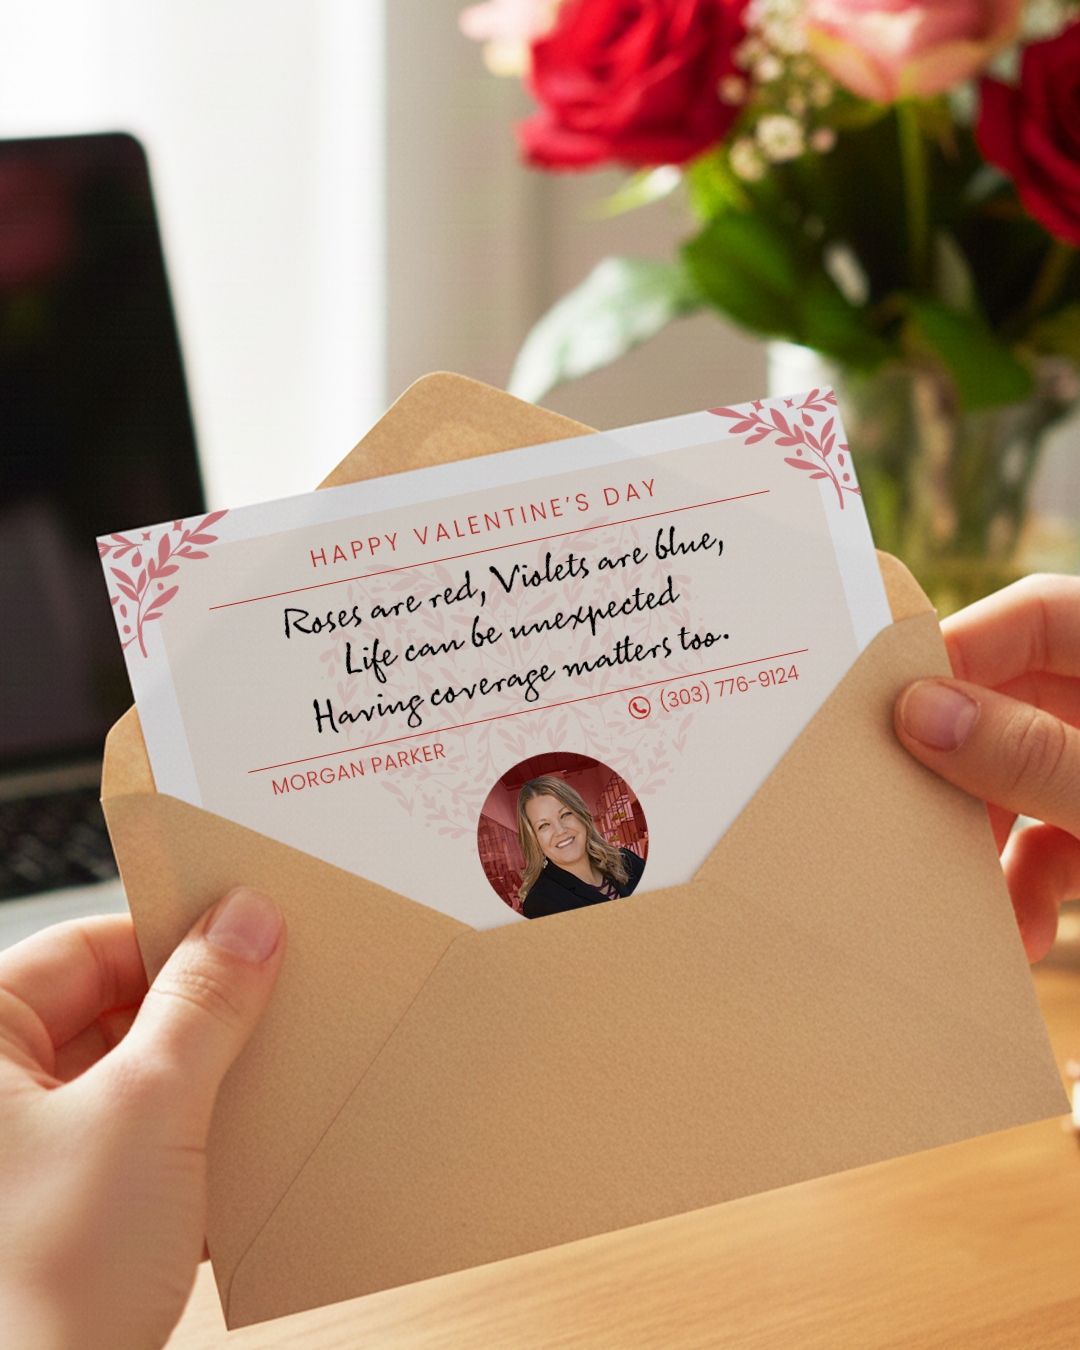 HAPPY VALENTINE'S DAY
Roses are red, Violets are blue,
Life can be unexpected
Having coverage matters too.
MORGAN PARKER
(303) 776-9124